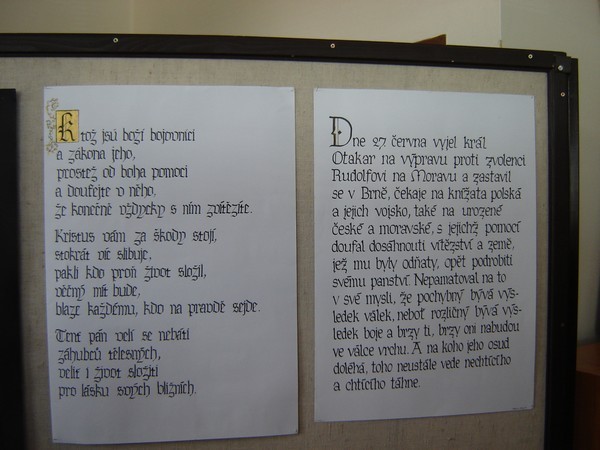 Ktož jsú boží bojovníci
a zákona jeho,
prostež od boha pomoci
a doufejte v něho,
že konečně vždycky s ním zvítězíte.
Kristus vám za škody stojí,
stokrát víc slibuje,
pakli kdo proň život složil,
věčný mít bude,
blaze každému, kdo na pravdě sejde.
Tent pán velí se nebáti
záhubců tělesných,
velit i život složiti
pro lásku svých bližních.
Dne 27. června vyjel král
Otakar na výpravu proti zvolenci
Rudolfovi na Moravu a zastavil
se v Brně, čekaje na knížata polská
a jejich vojsko, také na urozené
české a moravské, s jejichž pomocí
doufal dosáhnouti vítězství a země,
jež mu byly odňaty, opět podrobiti
svému panství. Nepamatoval na to
v své mysli, že pochybný bývá výs-
ledek válek, neboť rozličný bývá výs-
ledek boje a brzy ti, brzy oni nabudou
ve válce vrchu. A na koho jeho osud
doléhá, toho neustále vede nechtícího
a chtícího táhne.